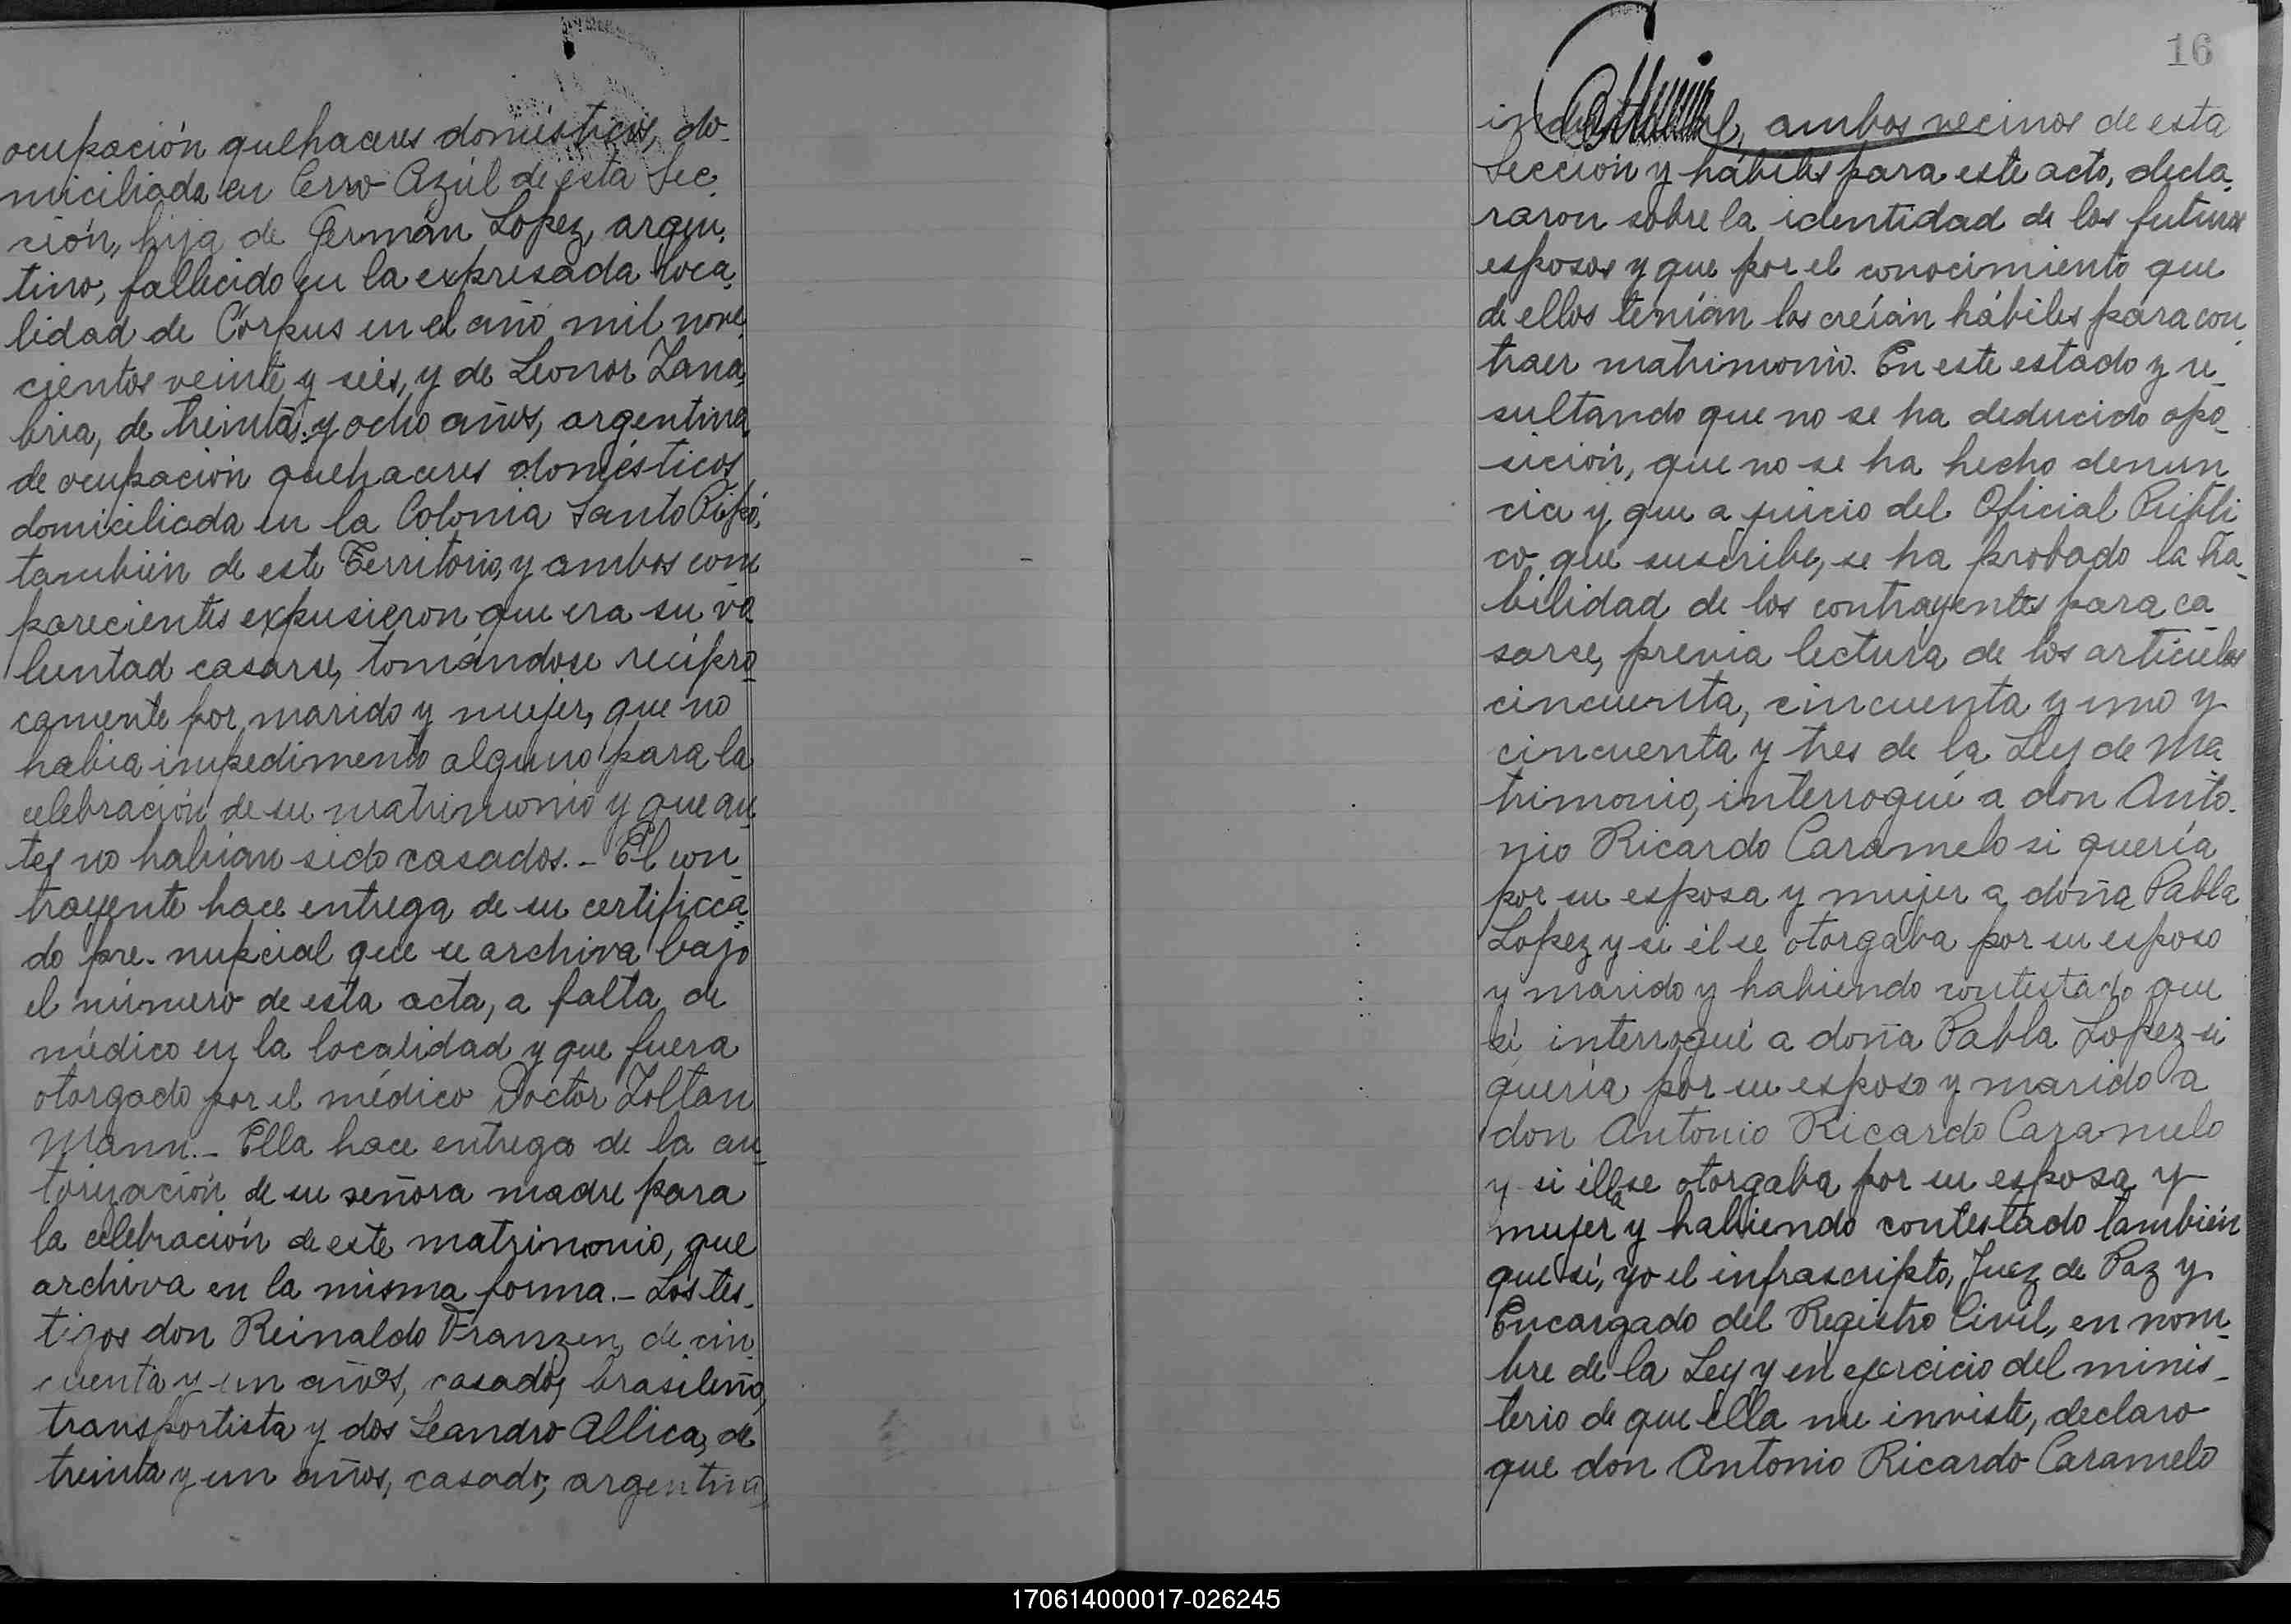 ocupación quehaceres domésticos, do-
miciliada en Cerro Azúl de esta Sec-
ción, hija de Germán Lopez, argen-
tino, fallecido en la expresada loca-
lidad de Córpus en el año mil nove-
cientos veinte y seis, y de Leonor Zana-
bria, de treinta y ocho años, argentina,
de ocupación quehaceres domésticos,
domiciliada en la Colonia Santo Pipó,
también de este Territorio, y ambos com
parecientes expusieron que era su vo
luntad casarse, tomándose recípro-
camente por marido y mujer, que no
habia impedimento alguno para la
celebración de su matrimonio y que an-
tes no habian sido casados.- El con-
trayente hace entrega de su certificca-
do pre-nupcial que se archiva bajo
el número de esta acta, a falta de
médico en la localidad y que fuera
otorgado por el médico Doctor Zoltan
Mann.- Ella hace entrega de la au-
torización de su señora madre para
la celebración de este matrimonio, que
archiva en la misma forma.- Los tes-
tigos don Reinaldo Franzen, de cin-
cuenta y un años, casado, brasileño,
transportista y dos Leandro Allica, de
treinta y un años, casado, argentino,
16
industrial, ambos vecinos de esta
Sección y hábiles para este acto, decla-
raron sobre la identidad de los futuros
esposos y que por el conocimiento que
de ellos tenían los creían hábiles para con
traer matrimonio. En este estado y re-
sultando que no se ha deducido opo-
sición, que no se ha hecho denun
cia y que a juicio del Oficial Públi
co que suscribe, se ha probado la ha-
bilidad de los contrayentes para ca-
sarse, previa lectura de los artículos
cincuenta, cincuenta y uno y
cincuenta y tres de la Ley de Ma
trimonio, interrogué a don Anto-
nio Ricardo Caramelo si quería
por su esposa y mujer a doña Pabla
Lopez y si él se otorgaba por su esposo
y marido y habiendo contestado que
sí interrogué a doña Pabla Lopez si
quería por su esposo y marido a
don Antonio Ricardo Caramelo
y si élla se otorgaba por su esposa y
mujer y habiendo contestado también
que sí, yo el infrascripto, Juez de Paz y
Encargado del Registro Civil, en nom-
bre de la Ley y en ejercicio del minis-
terio de que élla me inviste, declaro
que don Antonio Ricardo Caramelo
170614000017-026245